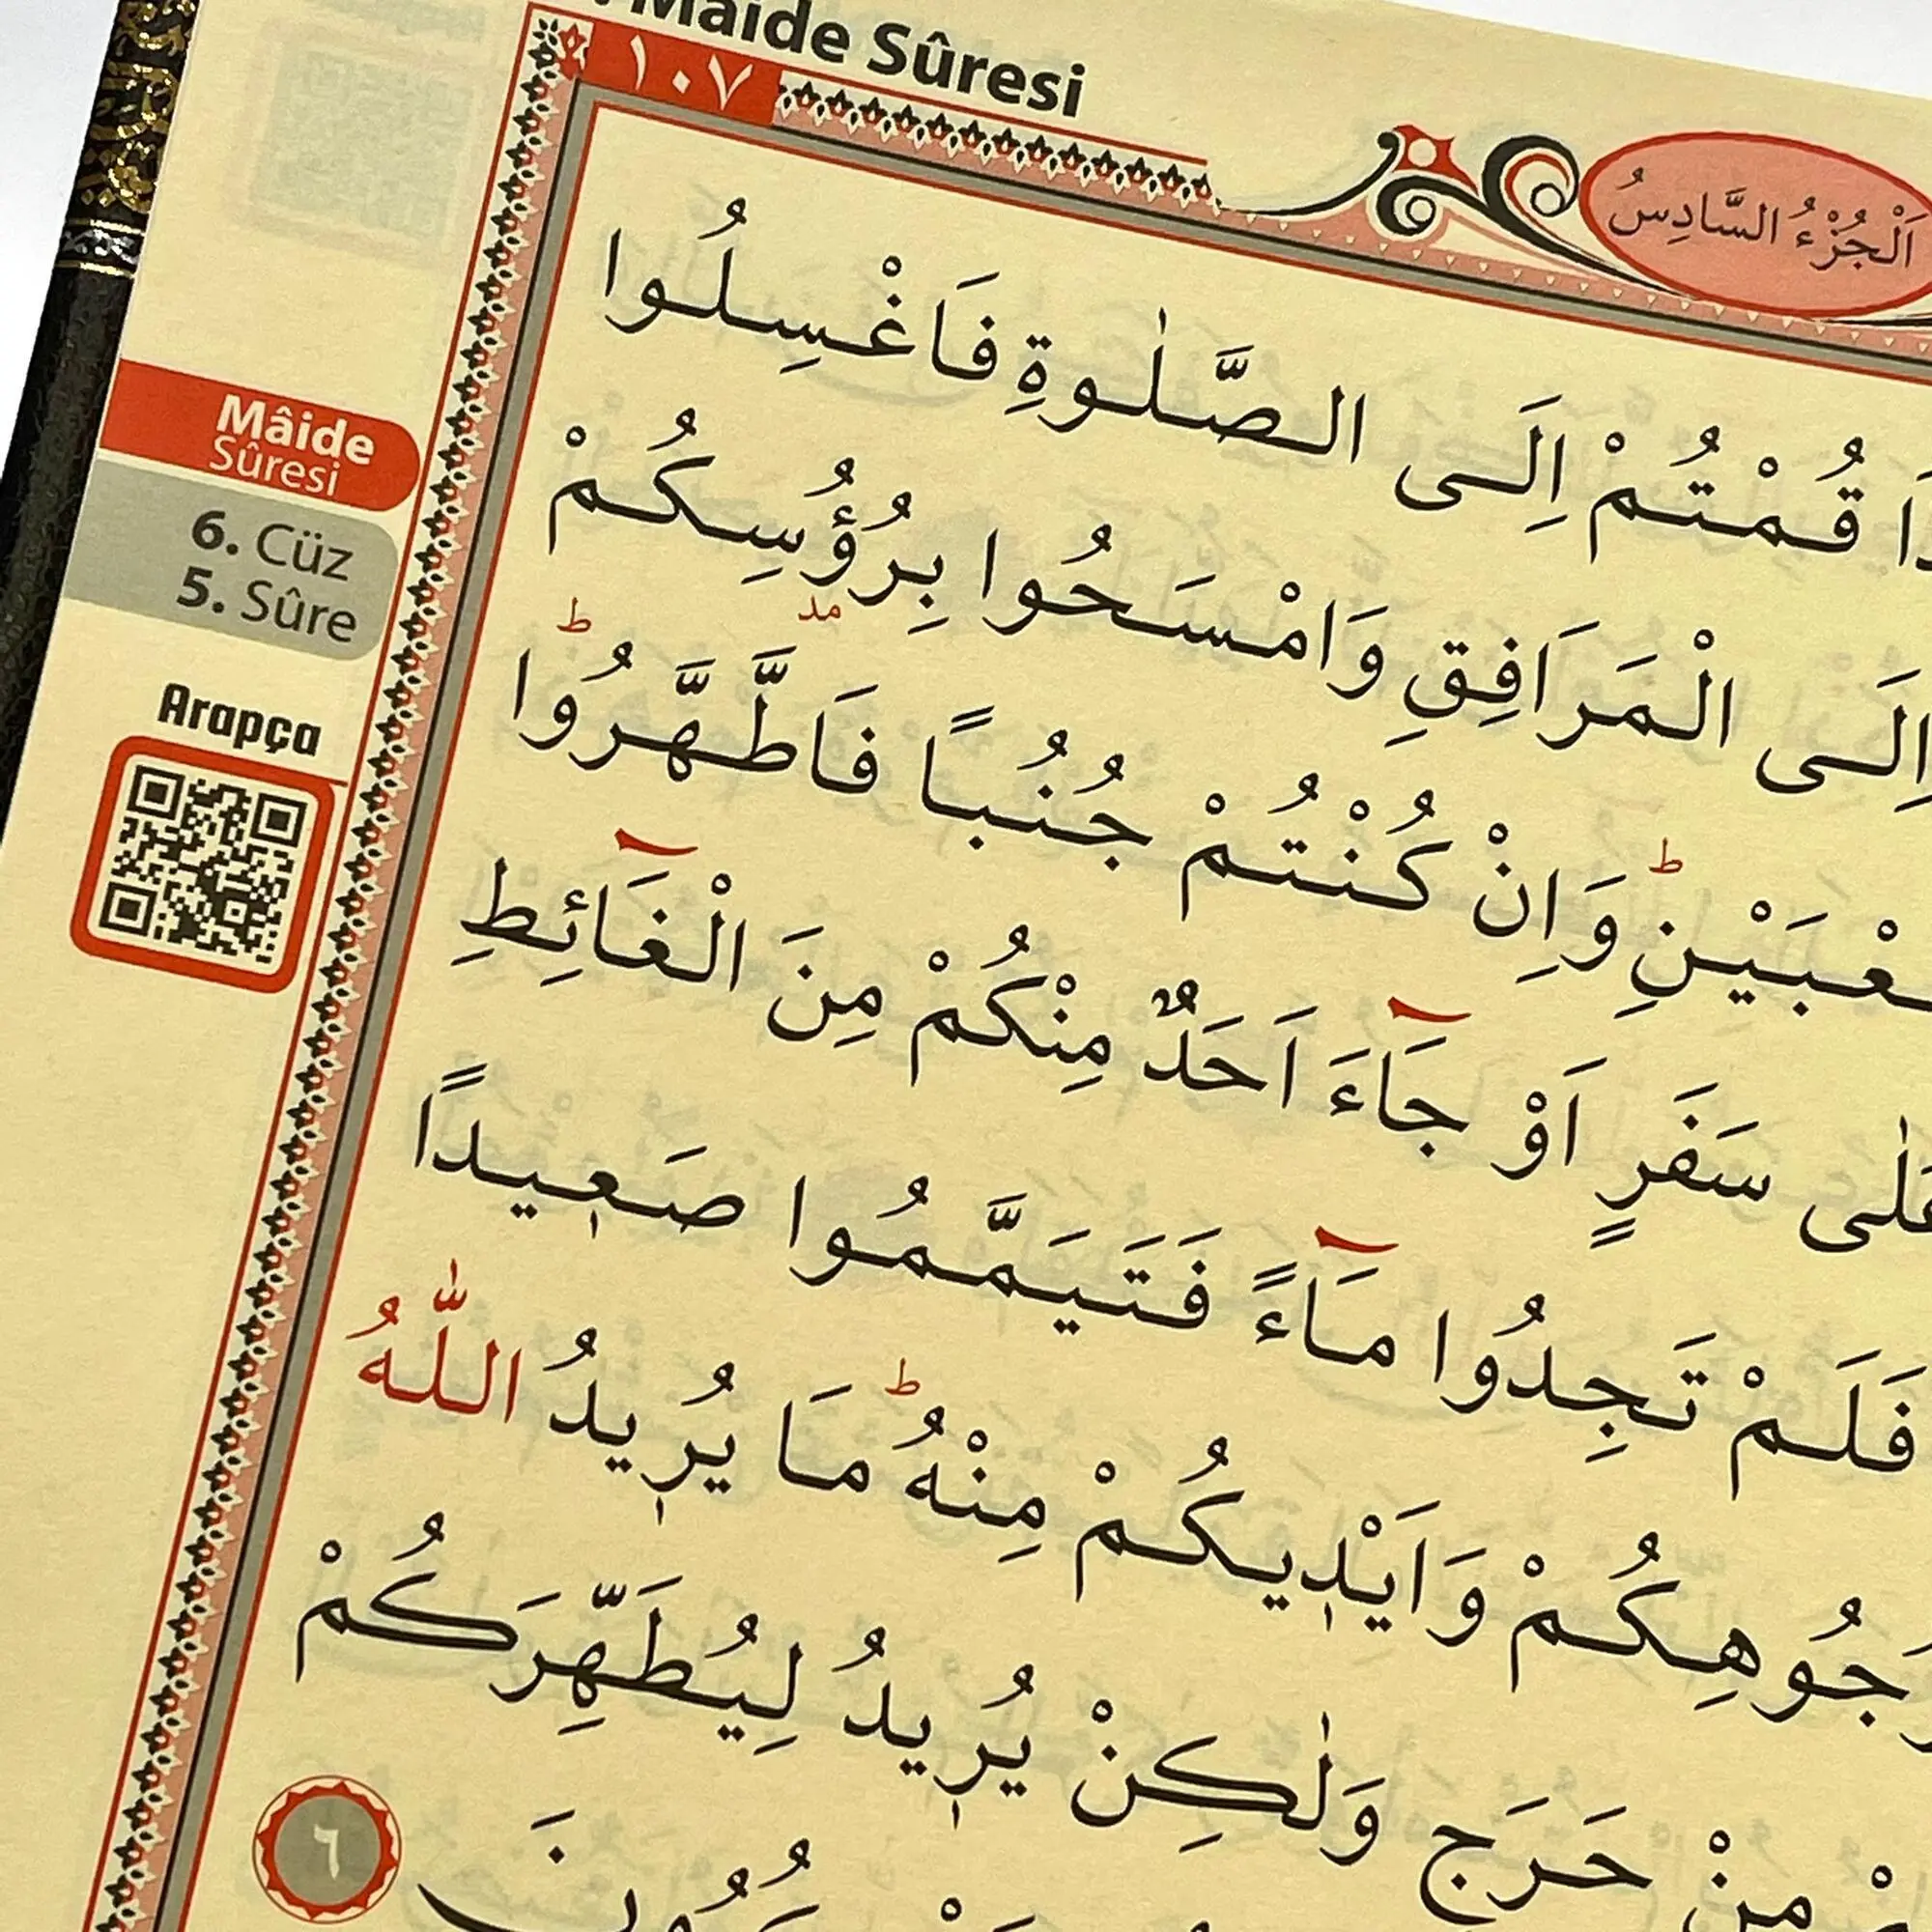 Mâide Sûresi
١٠٧
اَلْجُزْءُ السَّادِسُ
قُمْتُمْ اِلَى الصَّلٰوةِ فَاغْسِلُوا
اِلَى الْمَرَافِقِ وَامْسَحُوا بِرُؤُ۫سِكُمْ
مد ط
وَاِنْ كُنْتُمْ جُنُبًا فَاطَّهَّرُوا
ط
سَفَرٍ اَوْ جَٓاءَ اَحَدٌ مِنْكُمْ مِنَ الْغَٓائِطِ
فَلَمْ تَجِدُوا مَٓاءً فَتَيَمَّمُوا صَع۪يدًا
وَاَيْد۪يكُمْ مِنْهُۜ مَا يُر۪يدُ اللّٰهُ
مِنْ حَرَجٍ وَلٰكِنْ يُر۪يدُ لِيُطَهِّرَكُمْ
٦
Mâide
Sûresi
6. Cüz
5. Sûre
Arapça